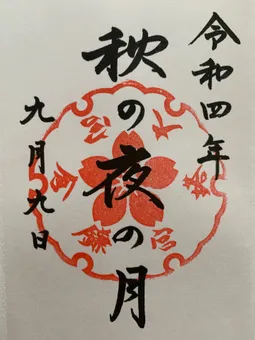 令和四年
秋の夜の月
九月九日